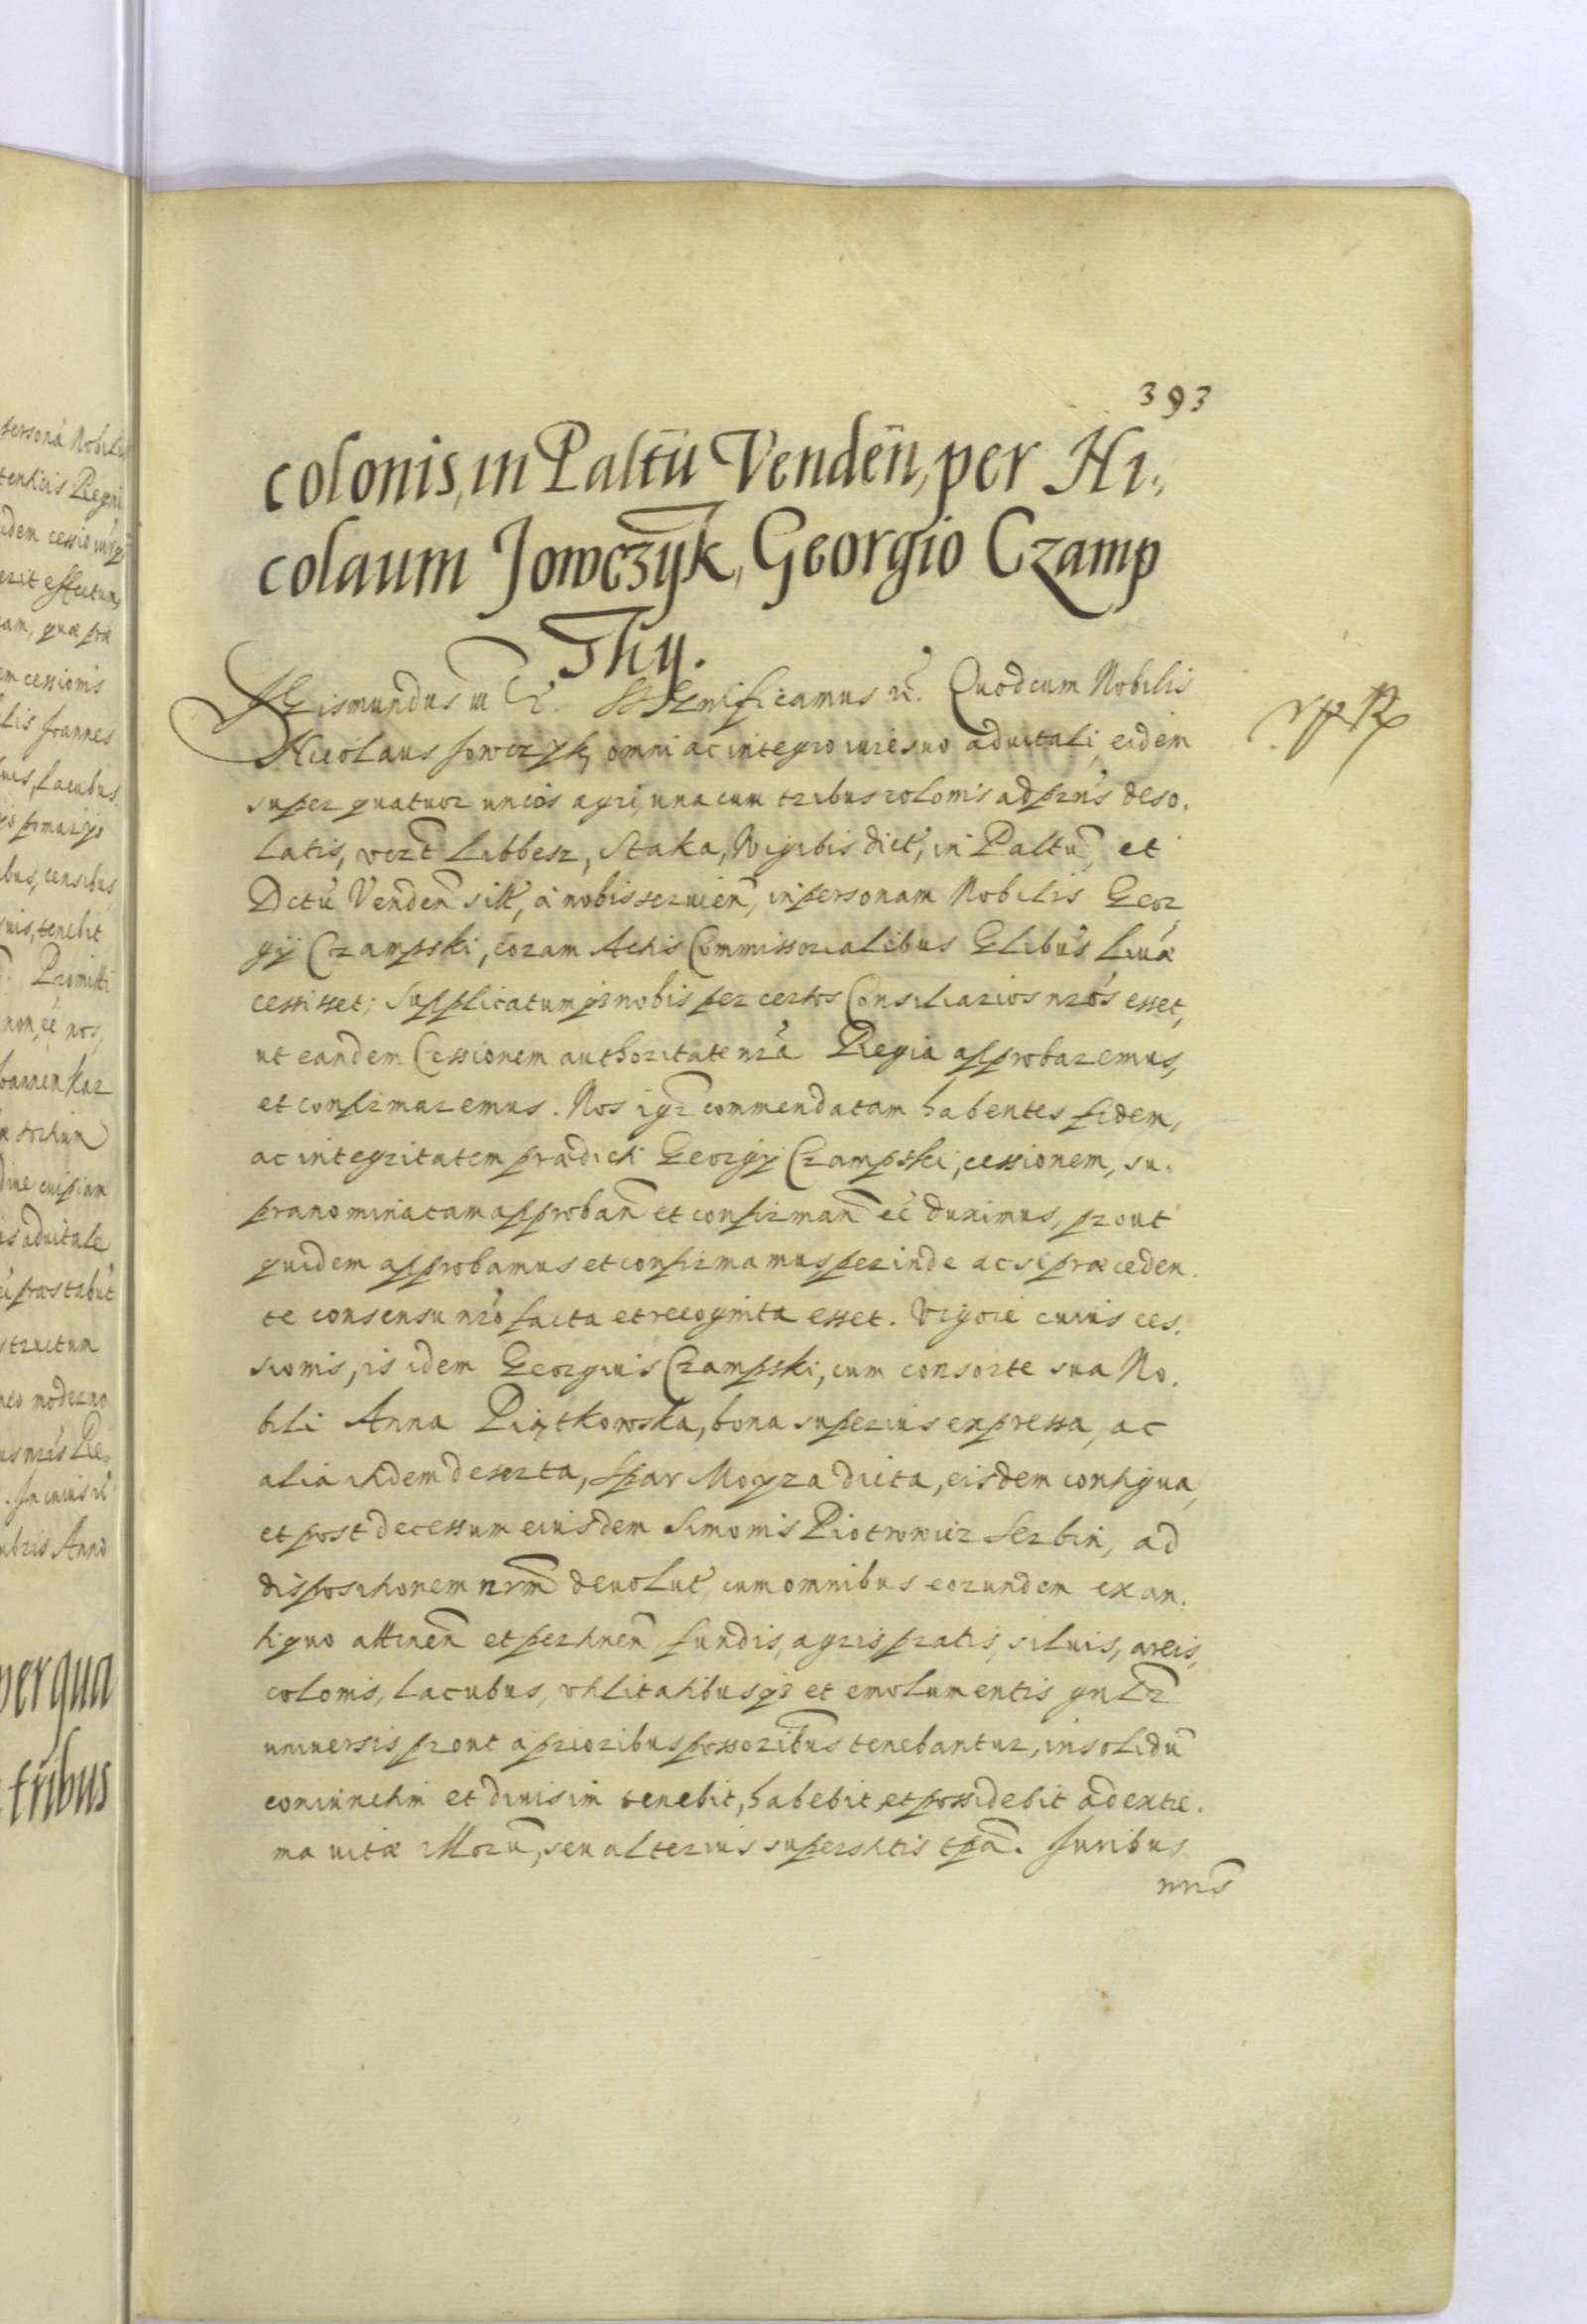 393
colonis, in Paltũ Vendeñ, per Ni„
colaum Jowczyk, Georgio Czamp
sky.
Sigismundus III etc. Significamus etc. Quod cum Nobilis
Nicolaus Jowczyk, omni ac integro iure suo aduitali, eidem
super quatuor uncos agri, una cum tribus colonis ad pr̃ns deso,
latis, Libbesz, Staka, Wigibis dict, in Paltũ, et
Dctũ Vendeñ sitt, à nobis seruien, in personam Nobilis Geor
gij Czampski, coram Actis Commissorialibus Glibus Liuæ
cessisset; Supplicatumq3 nobis per certos Consiliarios nr̃os esset,
ut eandem Cessionem authoritate nr̃a Regia approbaremus,
et confirmaremus. Nos igr̃ commendatam habentes fidem,
ac integritatem prædicti Georgij Czampski, cessionem, su.
pranominatam approbañ et confirmañ eẽ duximus, prout
quidem approbamus et confirmamus perinde ac si præceden.
te consensu nr̃o facta et recognita esset. Vigore cuius ces.
sionis, is idem Georgius Czampski, cum consorte sua No.
bili Anna Piątkowska, bona superius expressa, ac
alia itidem deserta, Spar Moyza dicta, eisdem contigua,
et post decessum eiusdem Simonis Piotrowicz Serbin, ad
dispositionem nr̃m deuolut, cum omnibus eorundem ex an.
tiquo attineñ et pertineñ, fundis, agris, pratis, siluis, areis,
colonis, lacubus, vtilitatibusq3 et emolumentis gnlr̃
uniuersis prout à prioribus possoribus tenebantur, in solidũ
coniunctim et diuisim tenebit, habebit, et possidebit ad extre.
ma uitæ illorũ, seu alterius superstitis tpã. Juribus
nris